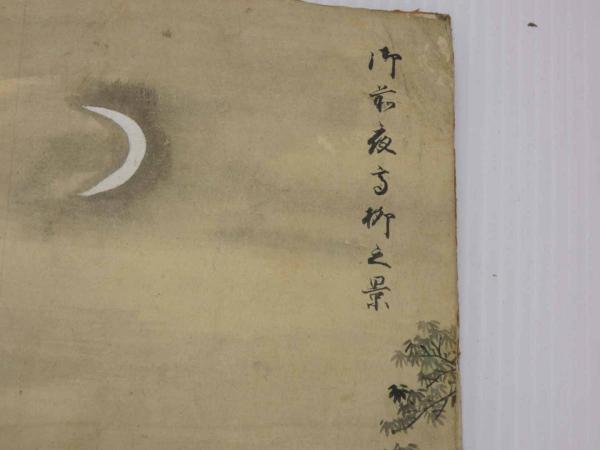 御前夜高柳之景